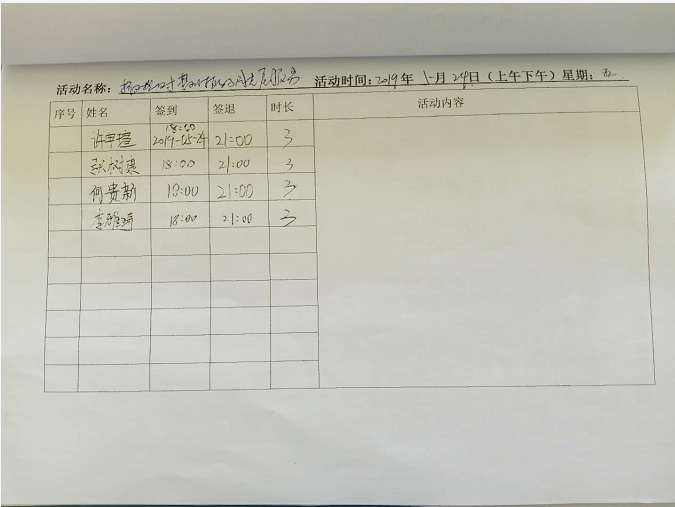 活动名称： 活动时间：2019年 5月 24日（上午下午）星期：五
序号 姓名 签到 签退 时长 活动内容
许宇瑄 18:00 2019-05-24 21:00 3
张 18:00 21:00 3
何贵新 18:00 21:00 3
李雅琦 18:00 21:00 3